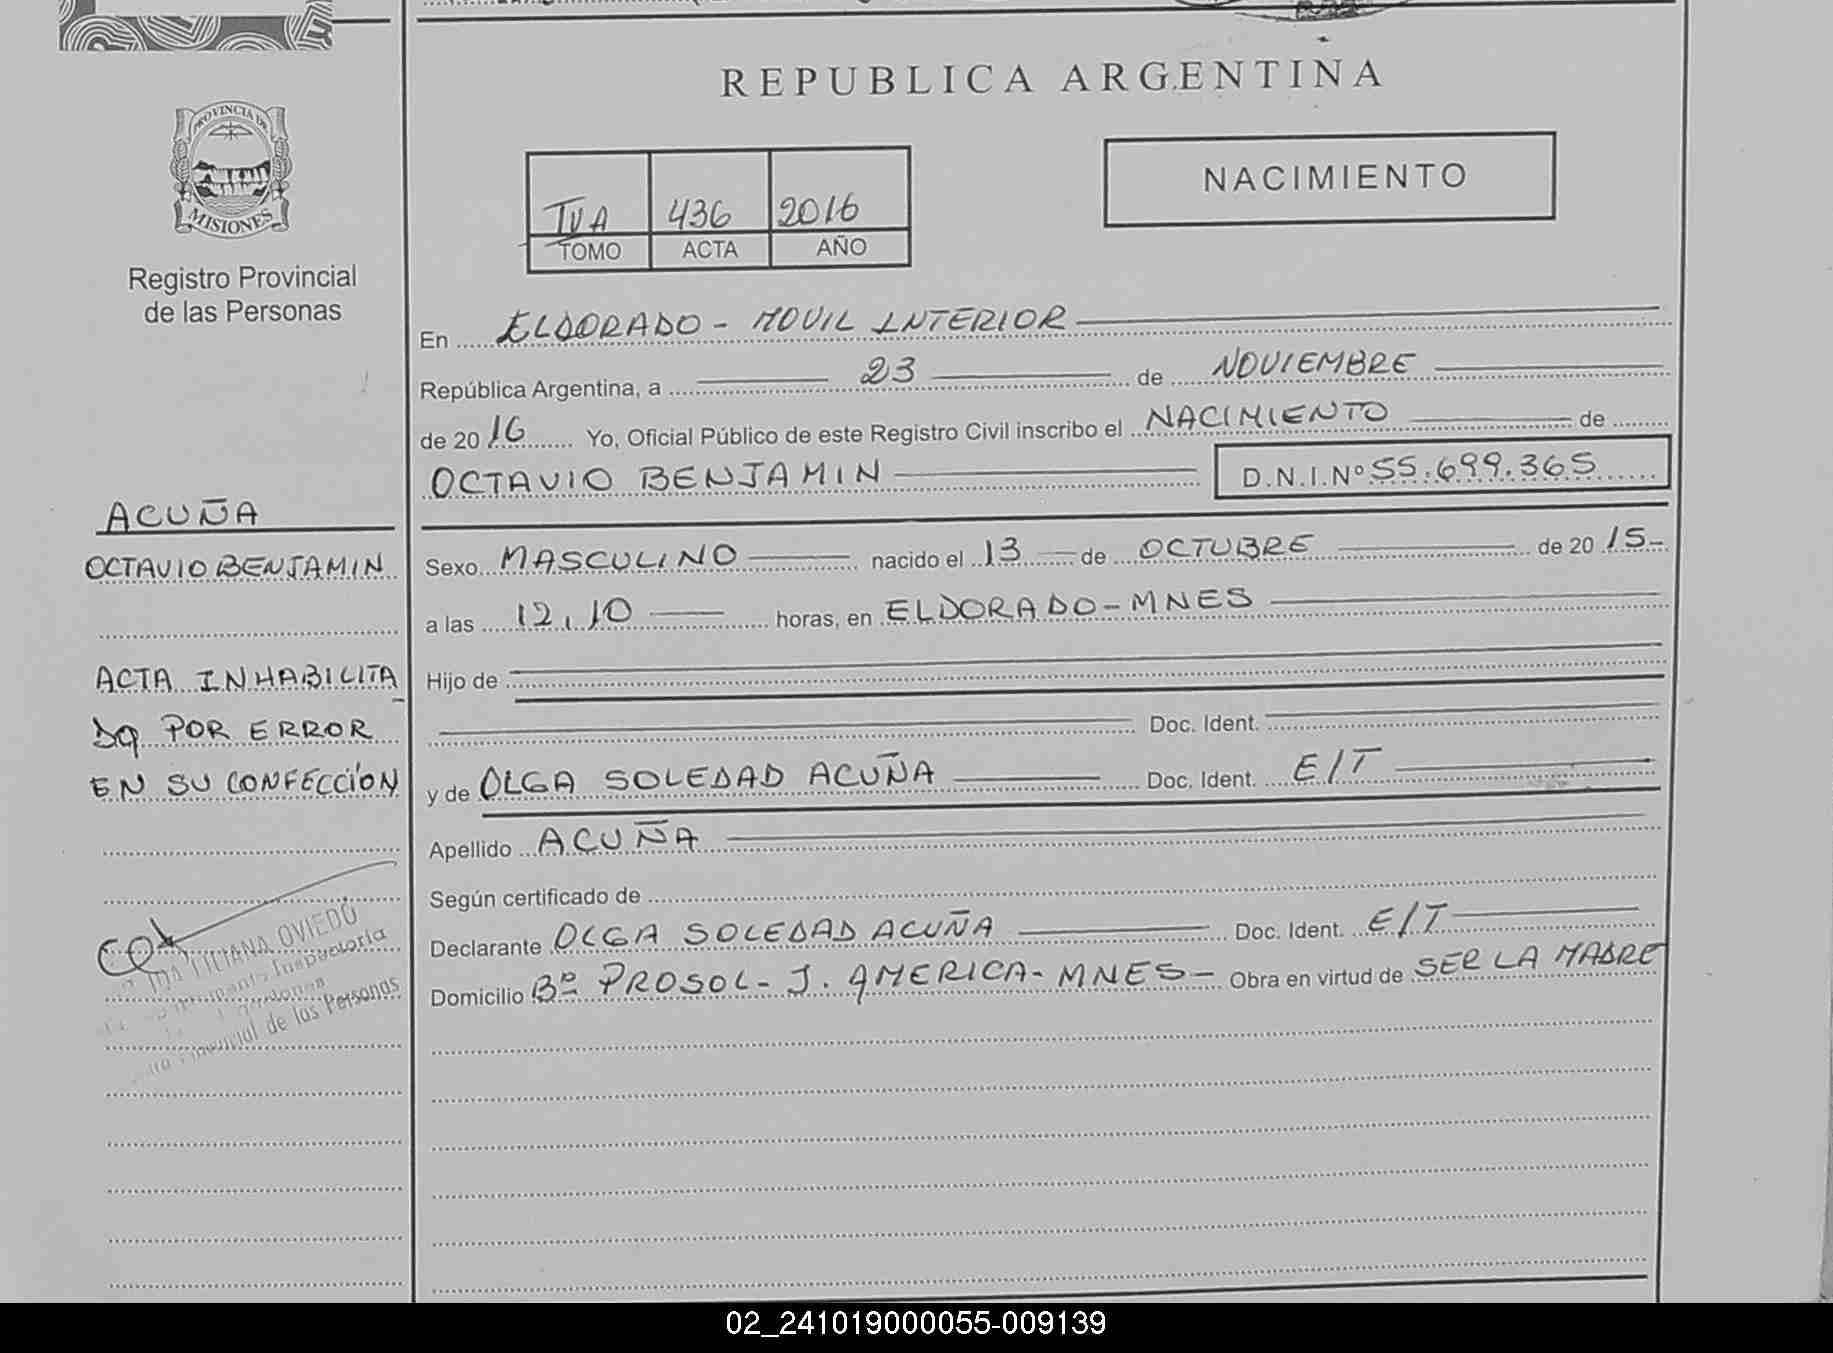 REPUBLICA ARGENTINA
PROVINCIA DE
MISIONES
Registro Provincial
de las Personas
NACIMIENTO
IVA 436 2016
TOMO ACTA AÑO
En ELDORADO - MOVIL INTERIOR
República Argentina, a 23 de NOVIEMBRE
de 2016 Yo, Oficial Público de este Registro Civil inscribo el NACIMIENTO de
OCTAVIO BENJAMIN D.N.I.Nº 55.699.365
ACUÑA
OCTAVIO BENJAMIN
ACTA INHABILITA
DA POR ERROR
EN SU CONFECCIÓN
LILIANA OVIEDO
de las Personas
Sexo MASCULINO nacido el 13 de OCTUBRE de 2015-
a las 12,10 horas, en ELDORADO-MNES
Hijo de
Doc. Ident.
y de OLGA SOLEDAD ACUÑA Doc. Ident. E/T
Apellido ACUÑA
Según certificado de
Declarante OLGA SOLEDAD ACUÑA Doc. Ident. E/T
Domicilio Bº PROSOL - J. AMERICA - MNES - Obra en virtud de SER LA MADRE
02_241019000055-009139